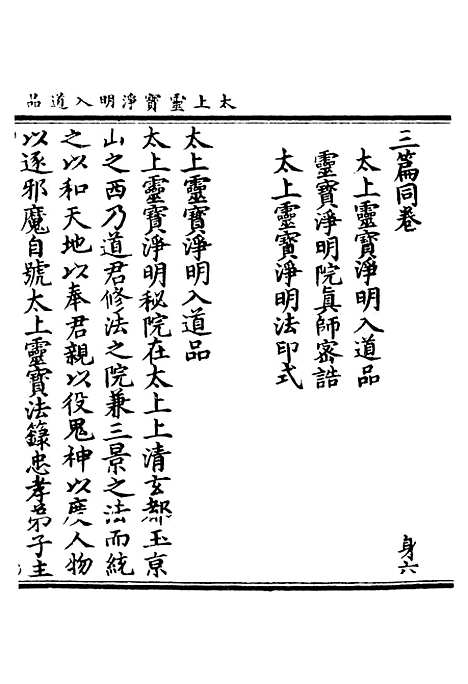 太上靈寳淨明入道品
三篇同卷
身六
太上靈寳淨明入道品
靈寳淨明院眞師密誥
太上靈寳淨明法印式
太上靈寳淨明入道品
太上靈寳淨明秘院在太上上清玄都玉京
山之西乃道君修法之院兼三景之法而統
之以和天地以奉君親以役鬼神以度人物
以逐邪魔自號太上靈寳法籙忠孝弟子主